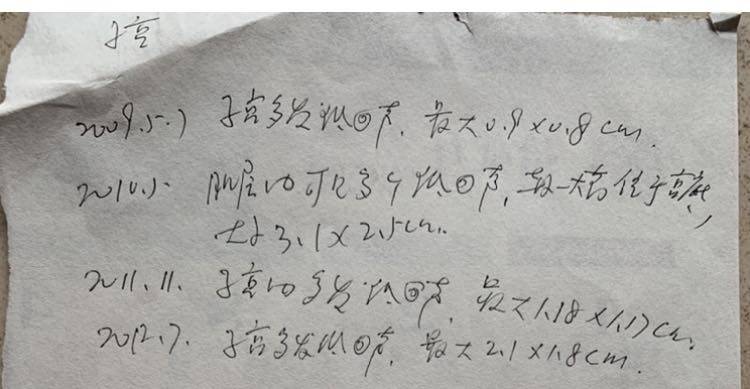 子宫
2009.5.7 子宫多发低回声，最大0.9×0.8cm.
2010.5. 肌层内可见多个低回声，较大者位于宫底，
大小3.1×2.5cm.
2011.11. 子宫内多发低回声，最大1.18×1.17cm.
2012.7. 子宫多发低回声，最大2.1×1.8cm.